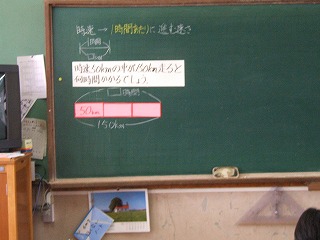 時速 → 1時間あたりに進む速さ
1時間
□km
時速50kmの車が150km走ると
何時間かかるでしょう。
□時間
50km
150km